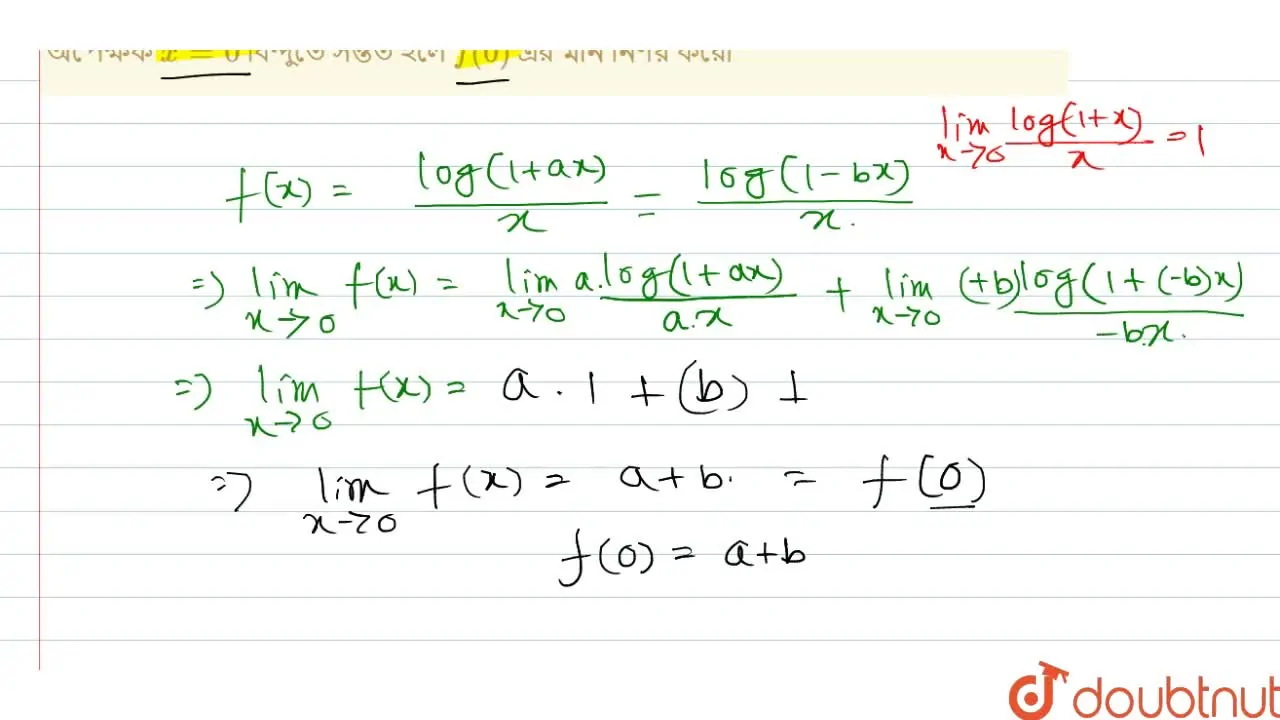 অপেক্ষক x = 0 বিন্দুতে সন্তত হলে f(0) এর মান নির্ণয় করো
lim x→0 log(1+x)/x = 1
f(x) = log(1+ax)/x = log(1-bx)/x.
=> lim x→0 f(x) = lim x→0 a.log(1+ax)/a.x + lim x→0 (+b)log(1+(-b)x)/-b.x.
=> lim x→0 f(x) = a . 1 + (b) 1
=> lim x→0 f(x) = a+b. = f(0)
f(0) = a+b
doubtnut